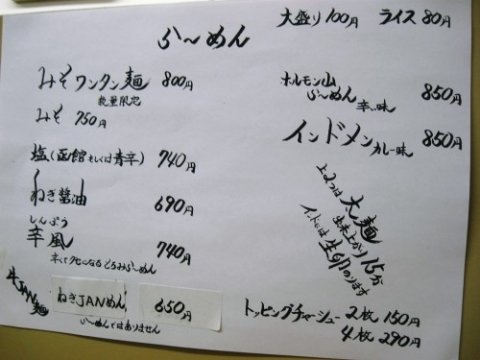 らーめん
大盛り100円 ライス80円
みそワンタン麺 800円
数量限定
みそ 750円
塩(函館もしくは青辛) 740円
ねぎ醤油 690円
しんぷう
辛風 740円
辛くてクセになるとろみらーめん
ねぎJANめん 650円
らーめんではありません
ホルモン山
らーめん 辛い味 850円
インドメン カレー味 850円
上2つは太麺
出来上がり15分
インドには生卵のります
トッピングチャーシュー 2枚 150円
4枚 290円